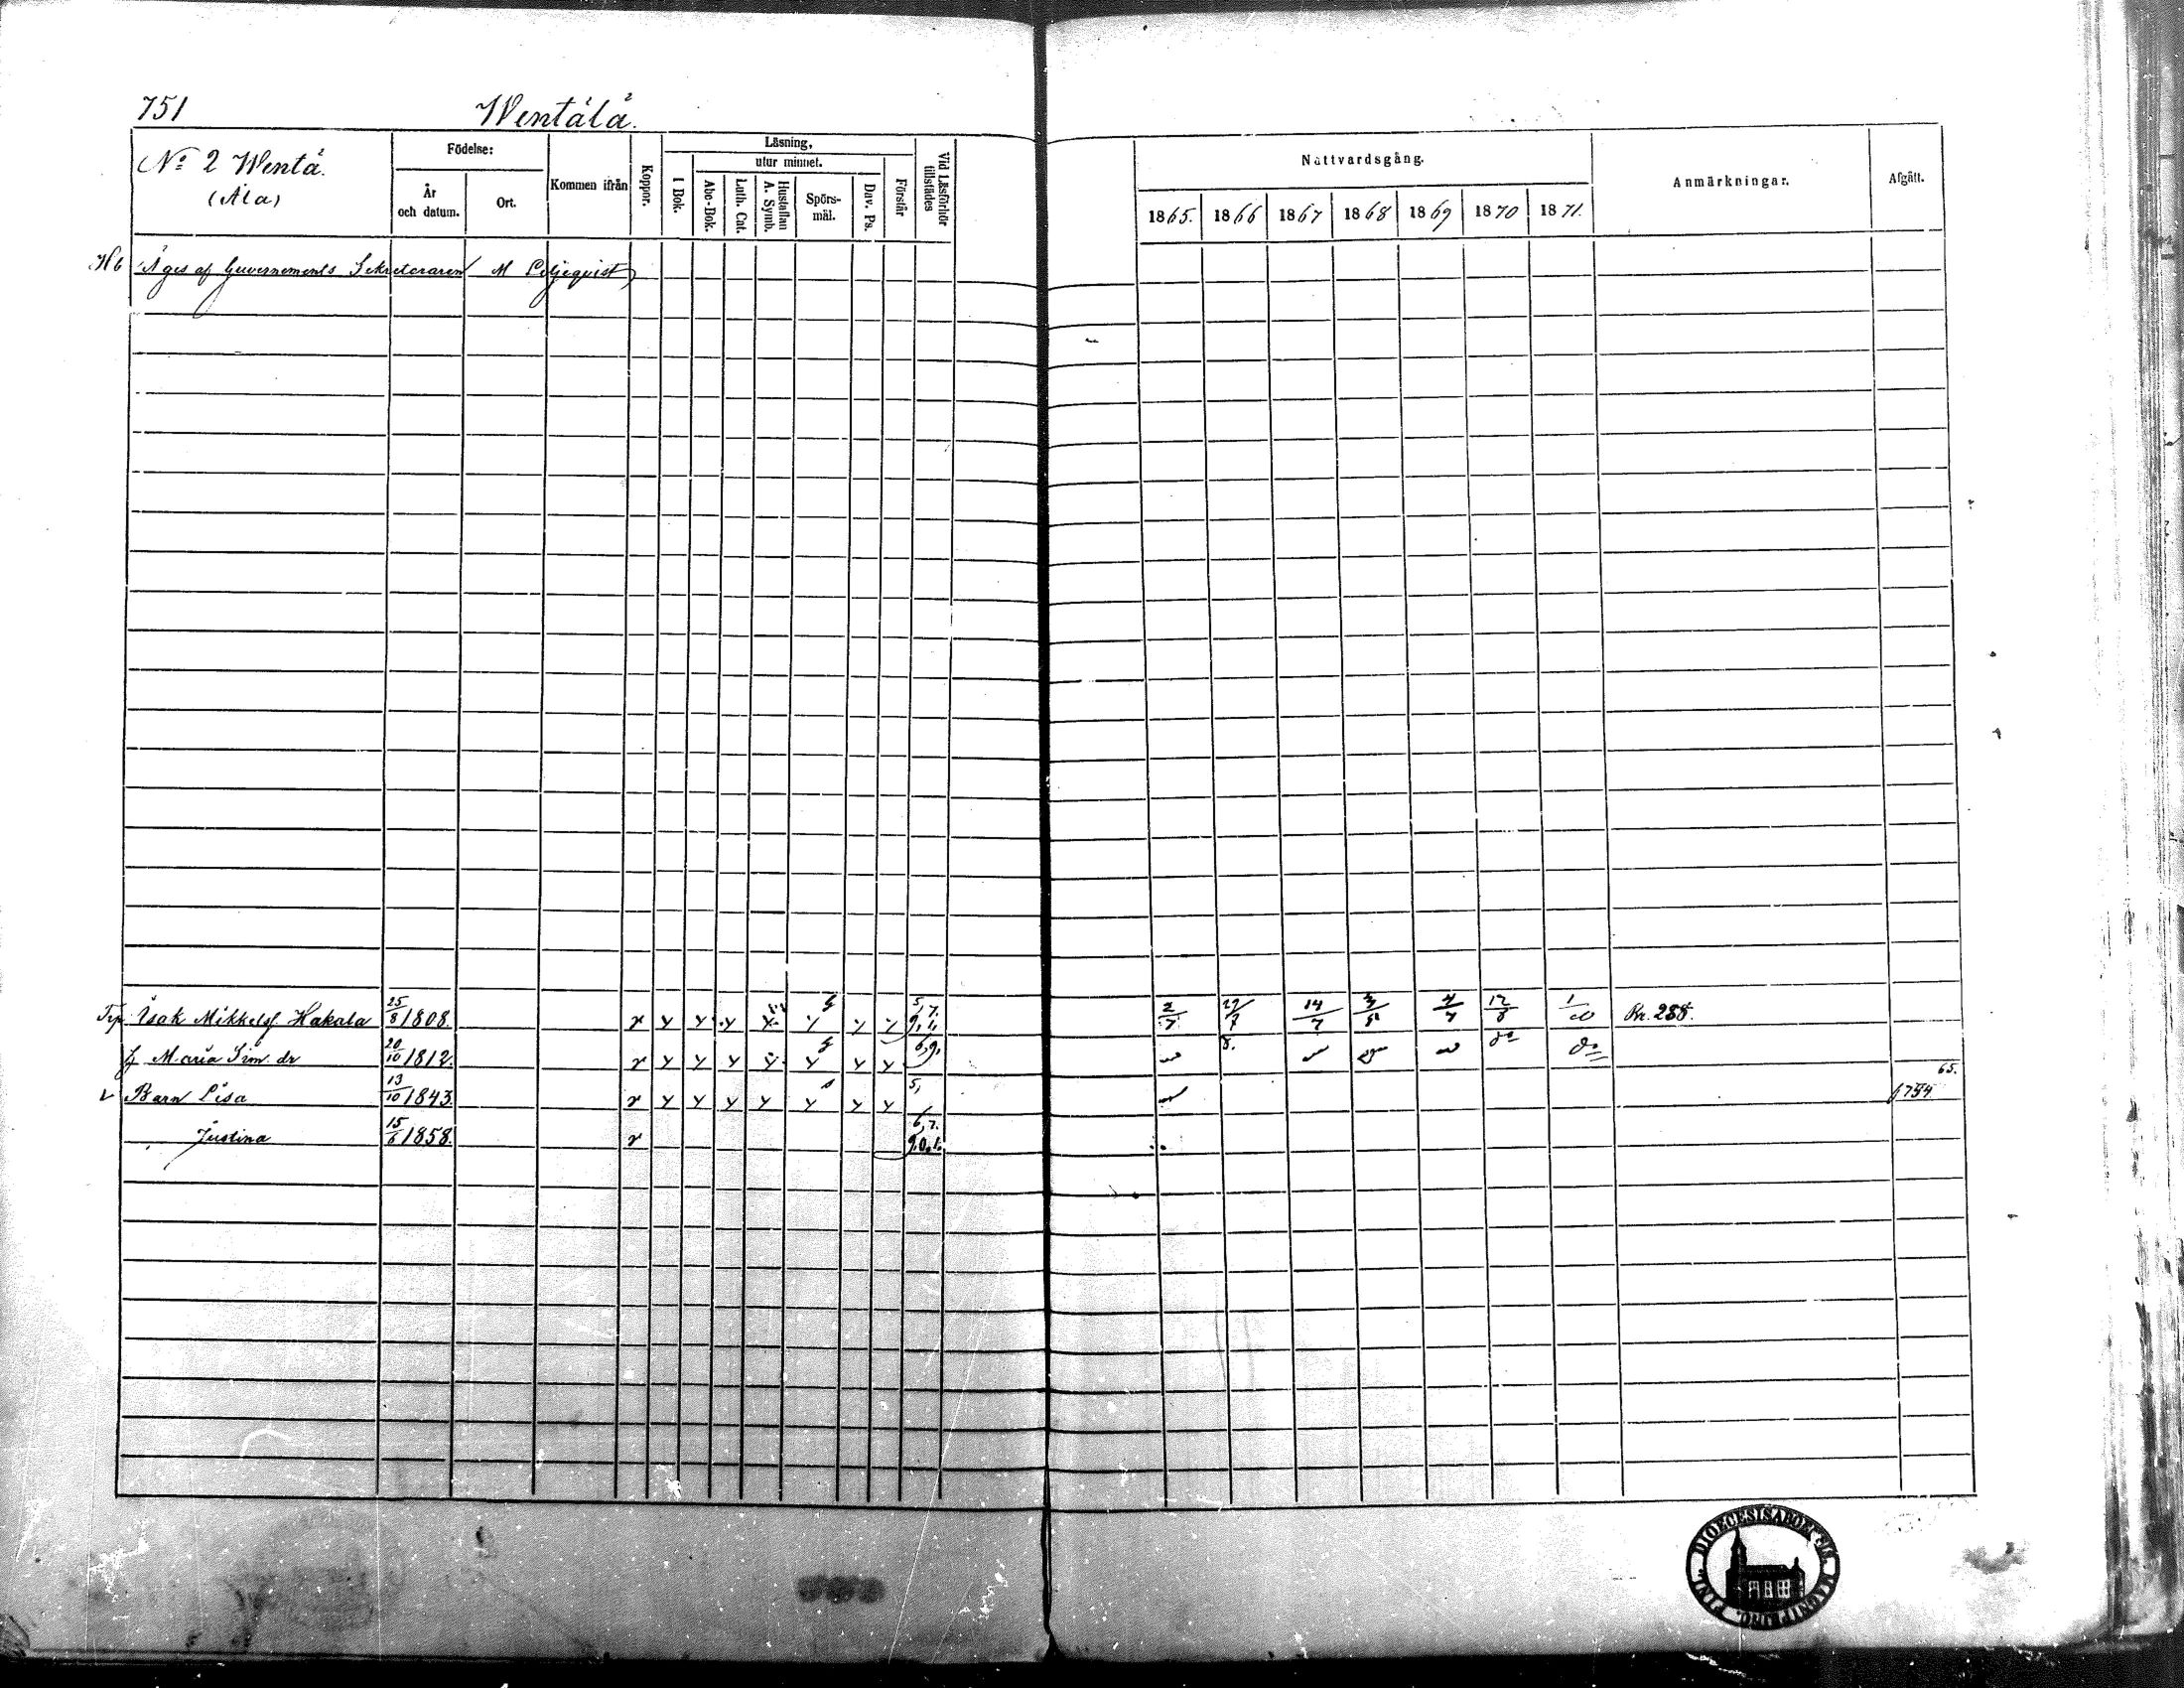 751 Wentälä.
No 2 Wentä.
(Ala)
Födelse:
År och datum.
Ort.
Kommen ifrån
Koppor.
Läsning,
I Bok.
utur minnet.
Abc-Bok.
Luth. Cat.
Hustaflan A. Symb.
Spörs-mål.
Dav. Ps.
Förstår
Vid Läsförhör tillstädes
Nattvardsgång.
1865. 1866 1867 1868 1869 1870 1871.
Anmärkningar.
Afgått.
Äges af Guvernements Sekreteraren M Liljeqvist
Isak Mikkelsf Hakala 25/8 1808. 5, 7. 9, 1, 2/7 14/7 4/7 12/8 Kr. 288.
Maria Sim. dr 20/10 1812. 6, 9, do do
Barn Lisa 13/10 1843. 5, 65. 754
Justina 15/6 1858. 6, 7. 9, 0, 1.